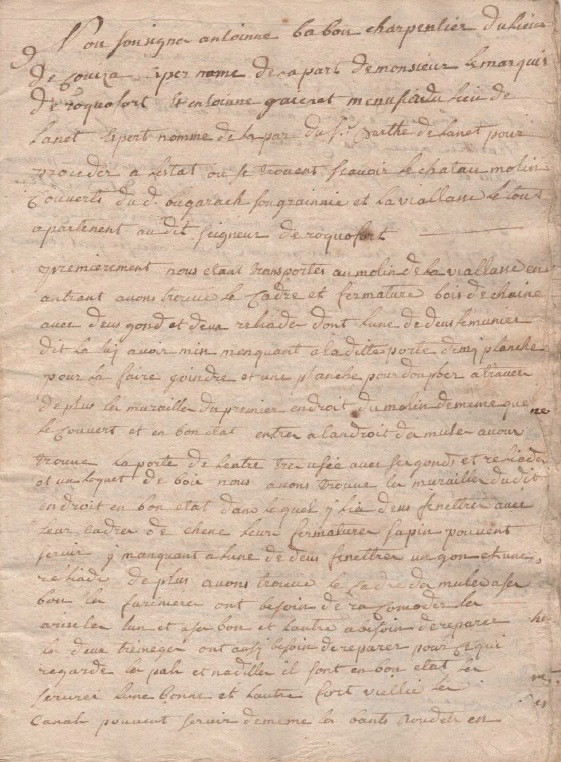 Nou sousigner antoinne babou charpentier du lieu
de Couiza Exper nomé de la part de monsieur le marquis
de roquofort Et antoinne menusié du lieu de
Lanet Expert nomme de la par du Sr. Barthe de Lanet pour
proceder a lestat ou se trouvent scavoir le chatau molin
Couverts du d. bugarach son et la viallasse le tout
apartenent audit seigneur de roquofort
premierement nous etant transportes au molin de la viallasse en
antrant avons trouve le Cadre et fermature bois de chaine
avec deus gond et deux rehades dont lune de deus
dit la luy avoir min menquant a ladite porte planche
pour la faire joindre et une planche pour doubler a traver
de plus les murailles du premier endroit du molin de meme que
le Couvert et en bon etat entrer a landroit da mules avons
trouve la porte de lentre avec ses gonds et rehades
et un loquet de bois nous avons trouve les murailles dudit
endroit en bon etat dans lequel y lia deus fenettres avec
leur cadres de chene leurs fermatures sapin pouvent
servir y manquant a lune de deus fenettres un gon et une
rehade de plus avons trouve le cadre da mules ases
bon les farineres ont besoin de racomoder les
lun et ases bon et lautre a besoin de reparer
la deus tremeges ont ausy besoin de reparer pour ce qui
regarde les pals et nadilles il sont en bon etat les
serures lune bonne et lautre fort vieille les
Canals pouvent servir de meme les bants en